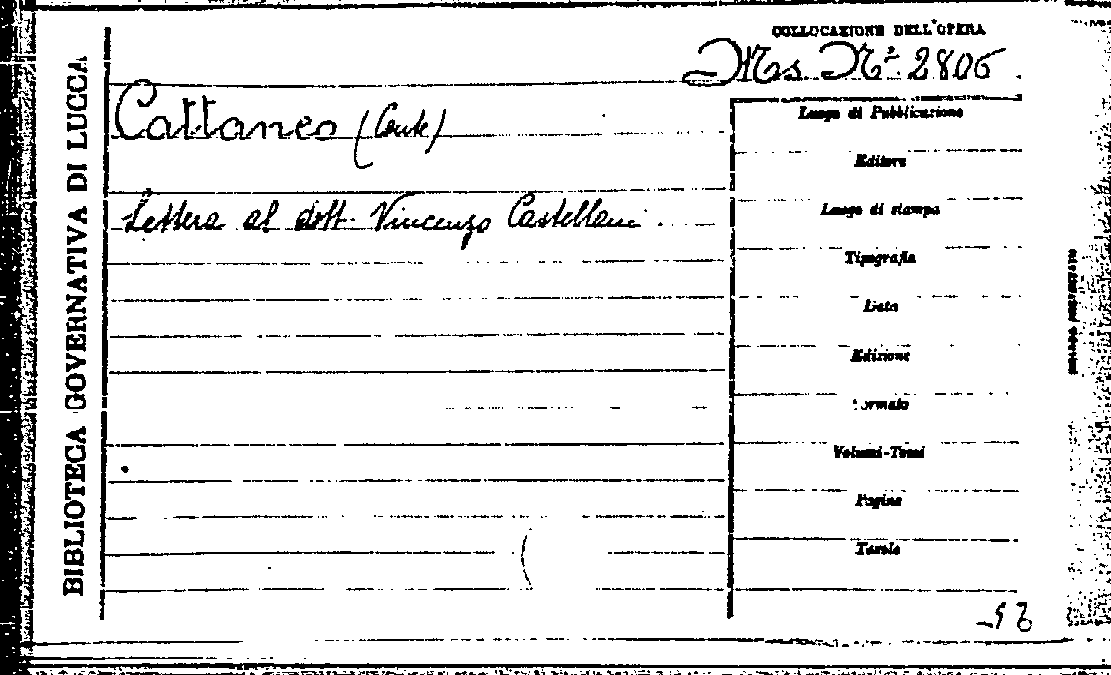 BIBLIOTECA GOVERNATIVA DI LUCCA
COLLOCAZIONE DELL'OPERA
Ms. Nº 2806
Cattaneo (Conte)
Lettera al dott. Vincenzo Castellani.
Luogo di Pubblicazione
Editore
Luogo di stampa
Tipografia
Data
Edizione
Formato
Volumi-Tomi
Pagine
Tavole